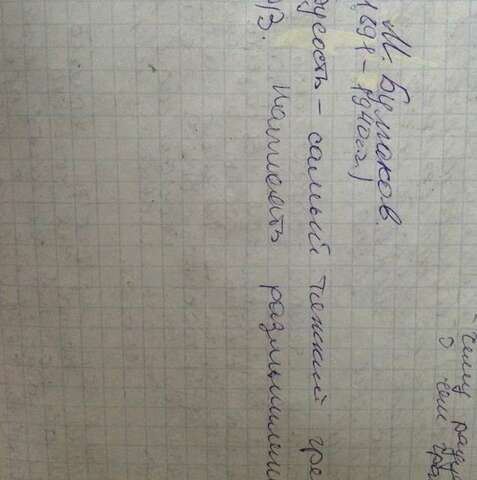 М. Булгаков.
1891 - 1940гг.)
русость - самый тяжкий гре
Написать размышлени